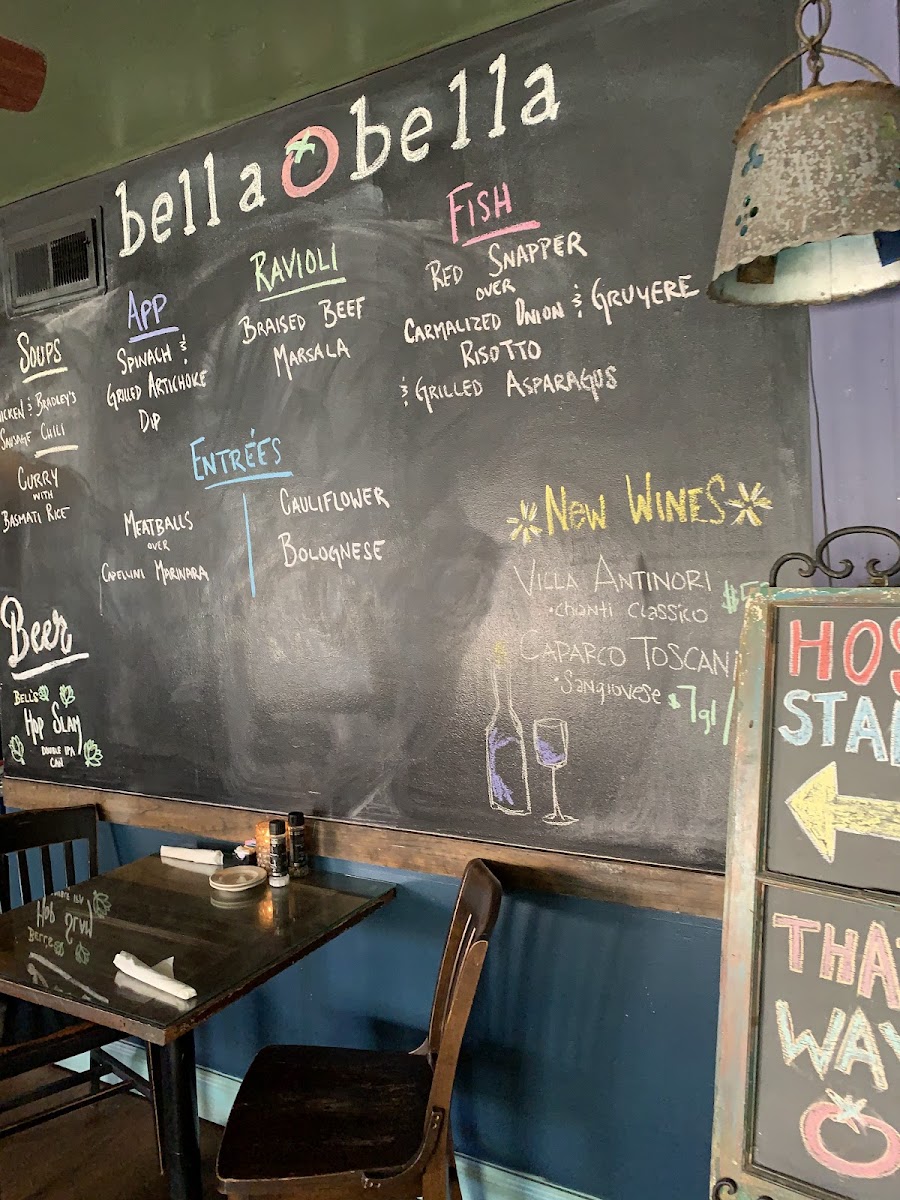 bella bella
FISH
RED SNAPPER
OVER
CARMALIZED ONION & GRUYERE
RISOTTO
& GRILLED ASPARAGUS
RAVIOLI
BRAISED BEEF
MARSALA
APP
SPINACH &
GRILLED ARTICHOKE
DIP
SOUPS
& BRADLEY'S
SAUSAGE CHILI
CURRY
WITH
BASMATI RICE
ENTRÉES
MEATBALLS
OVER
CAPELLINI MARINARA
CAULIFLOWER
BOLOGNESE
NEW WINES
VILLA ANTINORI
•CHIANTI CLASSICO
CAPARCO TOSCAN
•SANGIOVESE $7gl/
Beer
BELL'S
HOP SLAM
DOUBLE IPA
CAN
HOS
STA
THAT
WAY